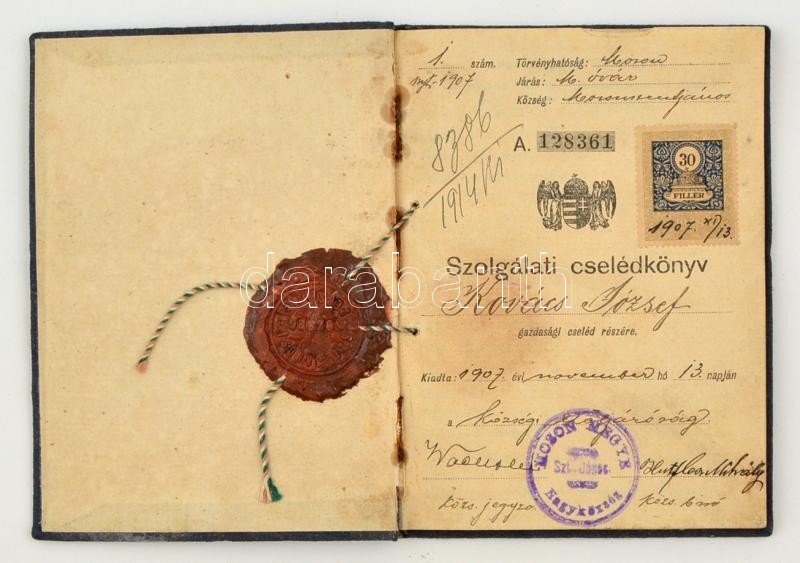 1. szám.
1907
8386
1914
Törvényhatóság: Moson
Járás: M. óvár
Község: Mosonszentjános
A. 128361
30
FILLÉR
1907. XI/13.
Szolgálati cselédkönyv
Kovács József
gazdasági cseléd részére.
Kiadta: 1907. évi november hó 13. napján
a községi elöljáróság
MOSON MEGYE
Szt. János.
Nagyközség
Mihály
közs. jegyző
közs. biró
darabanth